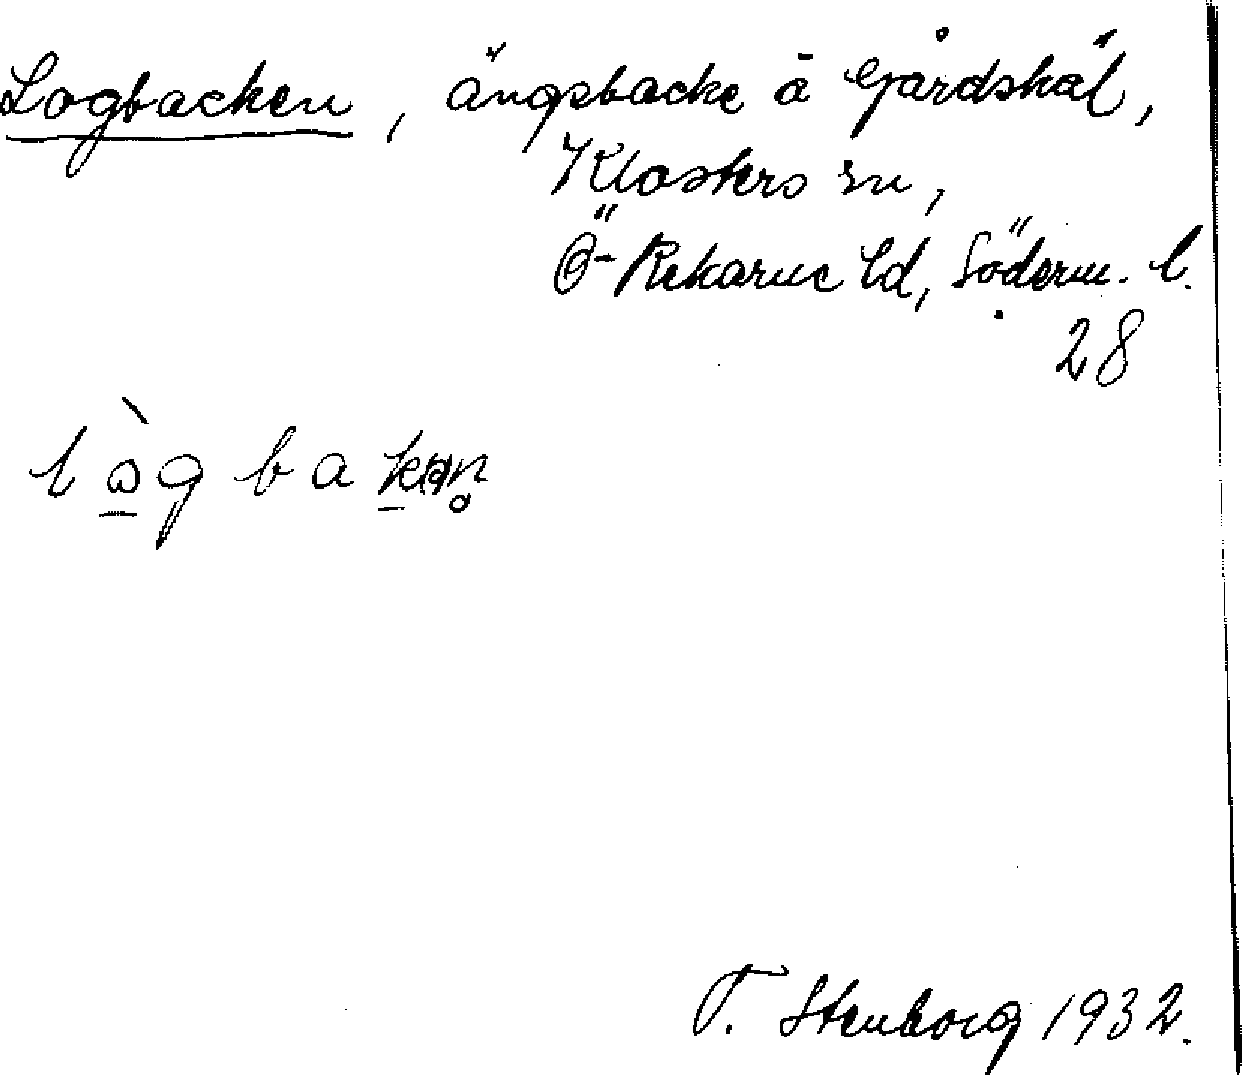 Logbacken, ängsbacke å Gårdskäl,
Klosters sn,
Ö-Rekarne hd, Söderm. l.
28
T. Stenborg 1932.